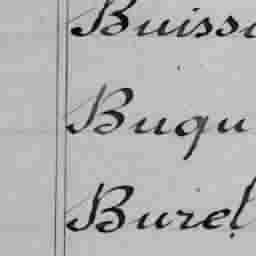 Buisso
Buqu
Buriel